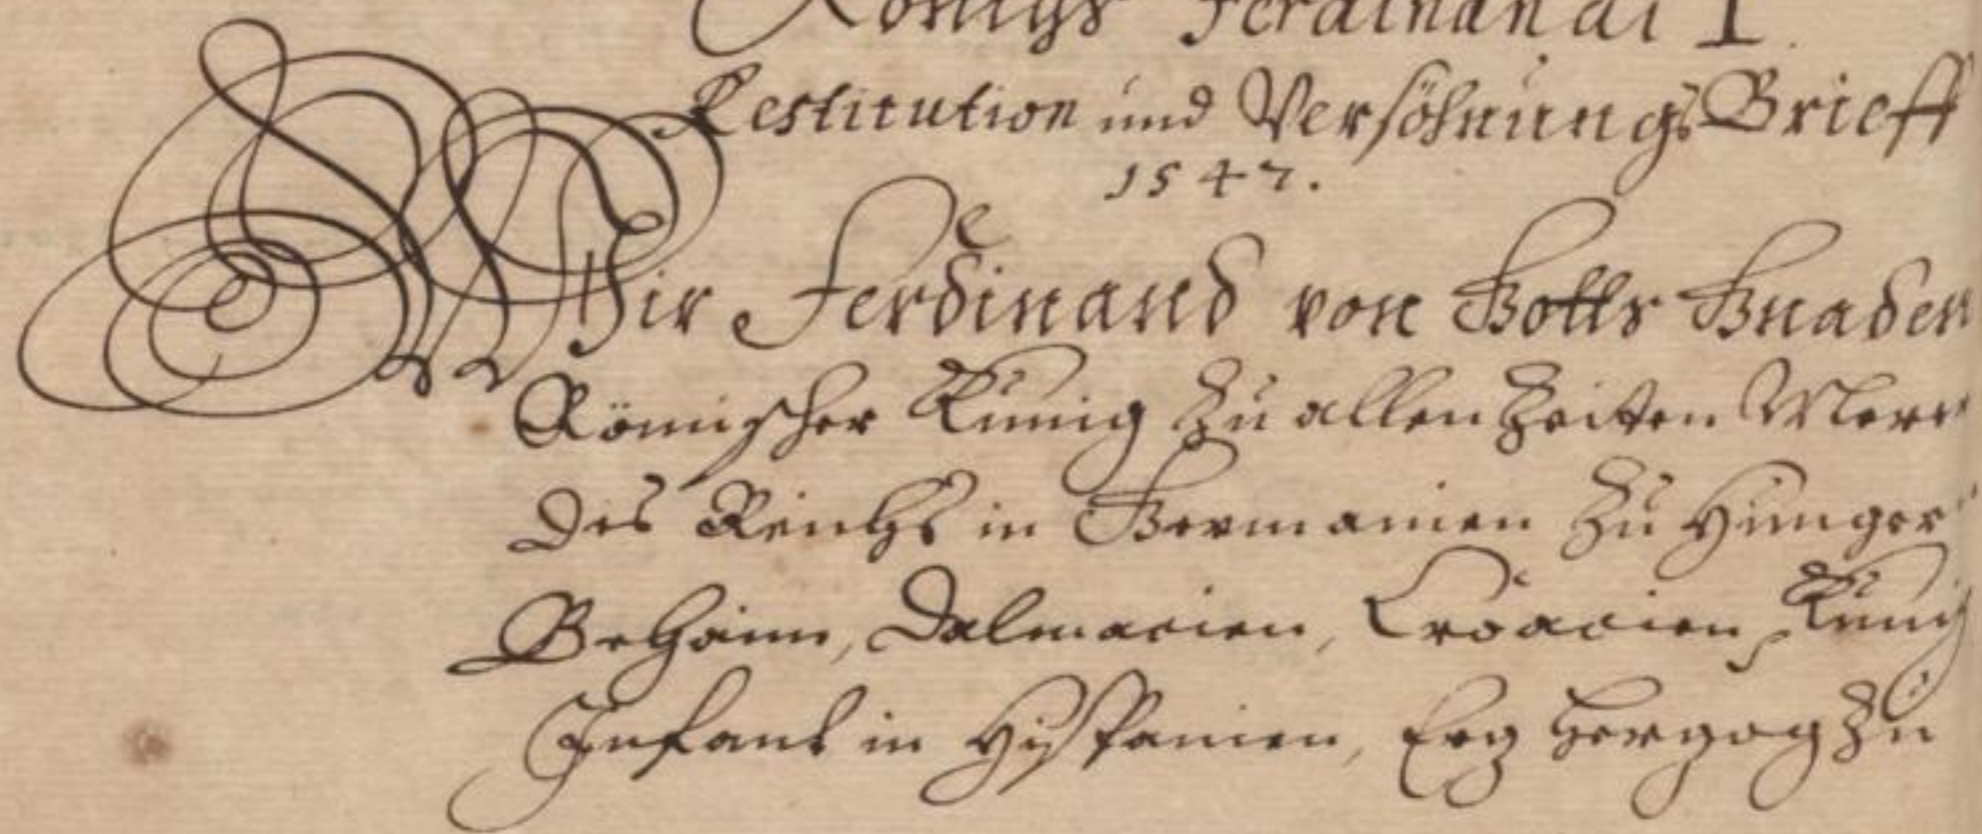 Königs Ferdinandi I.
Restitution und Versöhnungs Brieff
1547.
Wir Ferdinand von Gotts Gnaden
Römischer Künig zu allen Zeiten Merer
des Reichs in Germanien zu Hunger
Behaim, Dalmacien, Croacien, Künig
Infant in Hyspanien, Erz Herzog zu